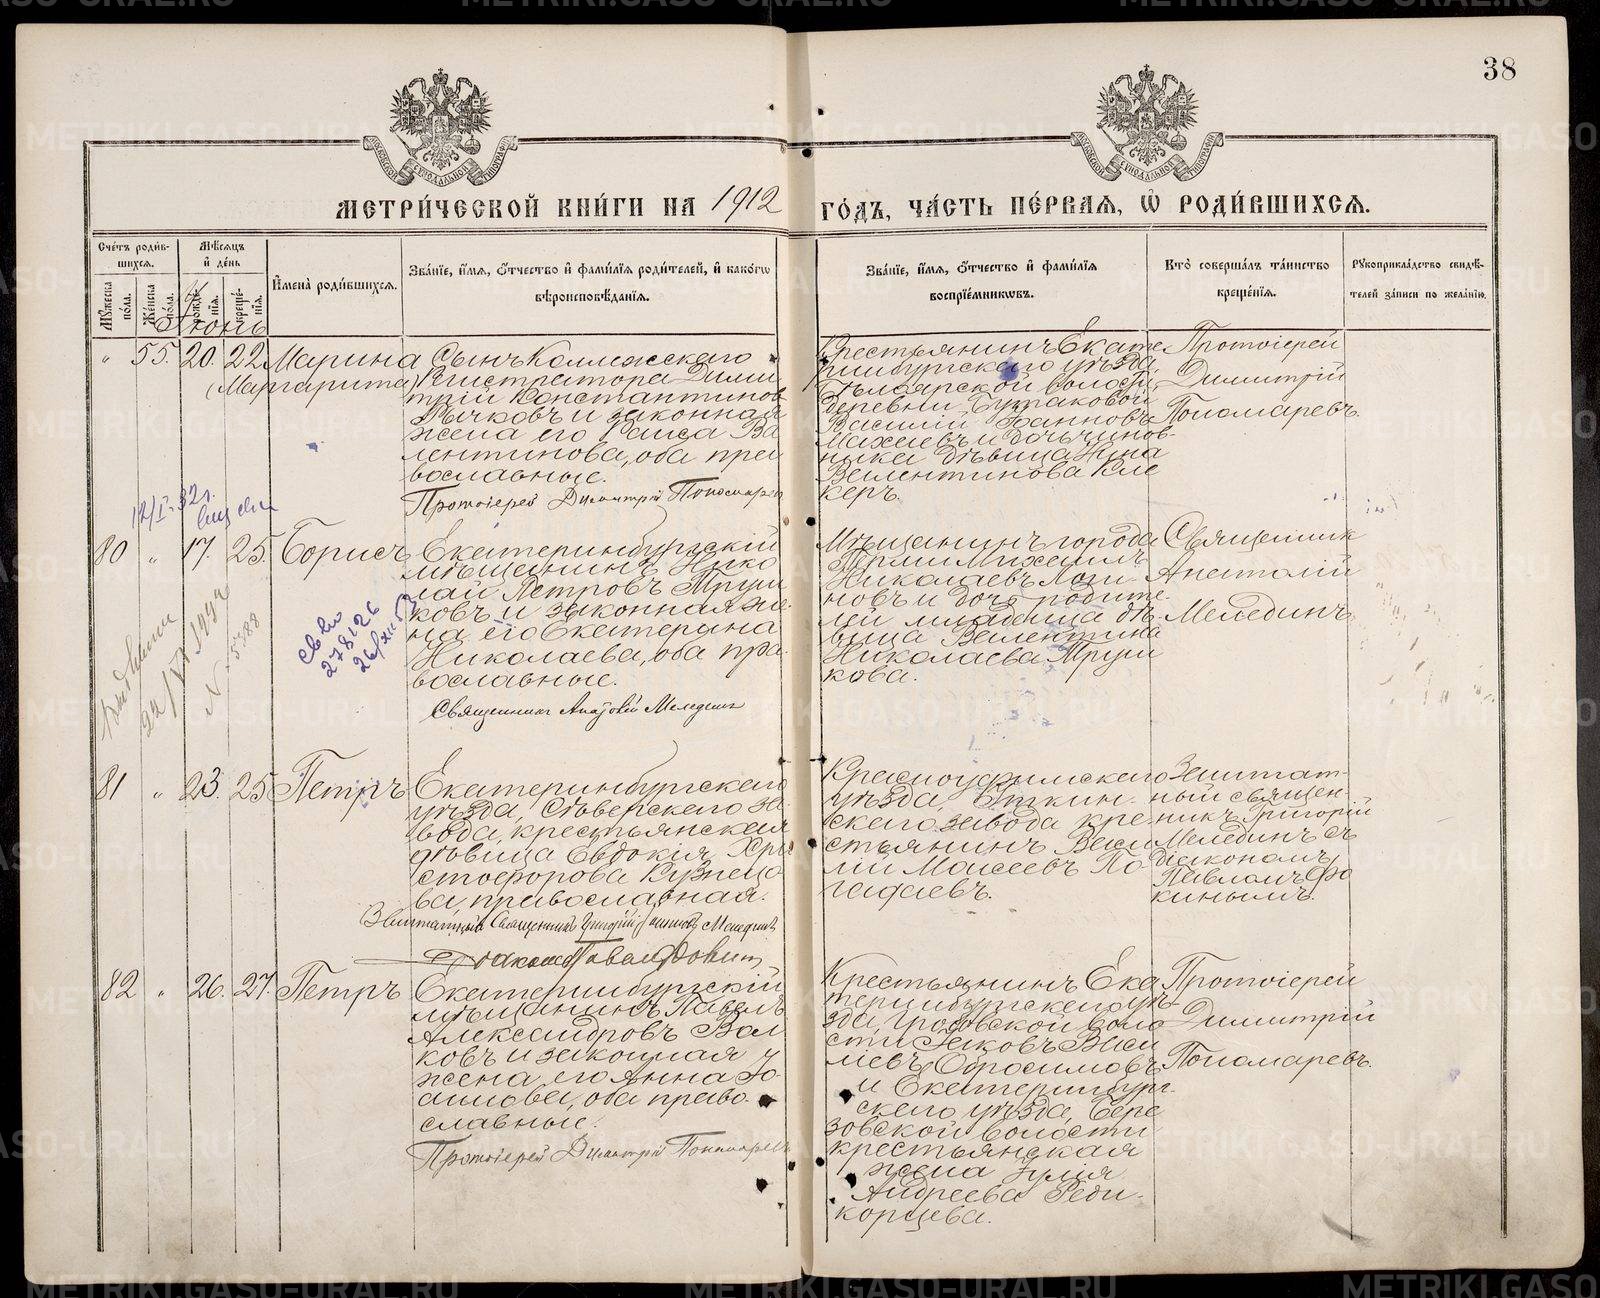 38
МЕТРИ́ЧЕСКОЙ КНИ́ГИ НА 1912
ГО́ДЪ, ЧА́СТЬ ПЕ́РВАѦ, Ѡ҆ РОДИ́ВШИХСѦ.
Сче́тъ роди́в-
шихсѧ.
Мꙋ́жеска по́ла.
Же́нска по́ла.
Мѣ́сѧцъ
и҆ де́нь
рожде́-
нїѧ.
креще́-
нїѧ.
И҆мена̀ роди́вшихсѧ.
Зва́нїе, и҆́мѧ, ѻ҆́тчество и҆ фами́лїѧ роди́телей, и҆ како́гѡ
вѣроисповѣ́данїѧ.
Зва́нїе, и҆́мѧ, ѻ҆́тчество и҆ фами́лїѧ
воспрїе́мникѡвъ.
Кто̀ соверша́лъ та́инство
креще́нїѧ.
Рꙋкоприкла́дство свидѣ́-
телей за́писи по жела́нїю.
Июнь
" 55. 20. 22.
Марина
(Маргарита)
Сынъ Коллежскаго
Регистратора Дими
трій Константинов
Рычковъ и законная
жена его Раиса Ва
лентинова, оба пра
вославные.
Протоіерей Димитрій Пономаревъ
Крестьянинъ Екате
ринбургскаго уѣзда,
Бѣлоярской волости,
деревни Бутаковой
Василій Іоанновъ
Махневъ и дочь чинов-
ника дѣвица Нина
Валентинова Кле
керъ.
Протоіерей
Димитрій
Пономаревъ.
12/I-32г.
80 " 17. 25.
Борисъ
Екатеринбургскій
мѣщанинъ Нико
лай Петровъ Труш
ковъ и законная же-
на его Екатерина
Николаева, оба пра-
вославные.
Священникъ Анатолій Мелединъ
N 5788
св-во
278126
Мѣщанинъ города
Перми Михаилъ
Николаевъ Логи-
новъ и дочь родите-
лей младенца дѣ-
вица Валентина
Николаева Труш
кова.
Священник
Анатолій
Мелединъ
81 " 23. 25
Петръ
Екатеринбургскаго
уѣзда, Сѣверскаго за-
вода, крестьянская
дѣвица Евдокія Хри
стофорова Кузнецо
ва православная.
Заштатный Священникъ Григорій Мелединъ
Діаконъ Павелъ Фокинъ
Красноуфимскаго
уѣзда, Уткин-
скаго завода кре-
стьянинъ Васи
лій Моисеевъ По
гадаевъ.
Заштат-
ный священ-
никъ Григорій
Мелединъ съ
діакономъ
Павломъ Фо
кинымъ.
82 " 26. 27.
Петръ
Екатеринбургскій
мѣщанинъ Павелъ
Александровъ Вол
ковъ и законная
жена его Анна Іо-
аннова, оба право-
славные.
Протоіерей Димитрій Пономаревъ
Крестьянинъ Ека
теринбургскаго уѣ-
зда, Гробовской воло
сти Яковъ Васи
льевъ Обросимовъ
и Екатеринбург-
скаго уѣзда, Бере
зовской волости
крестьянская
жена Юлія
Андреева Реди-
корцева.
Протоіерей
Димитрій
Пономаревъ.
METRIKI.GASO-URAL.RU